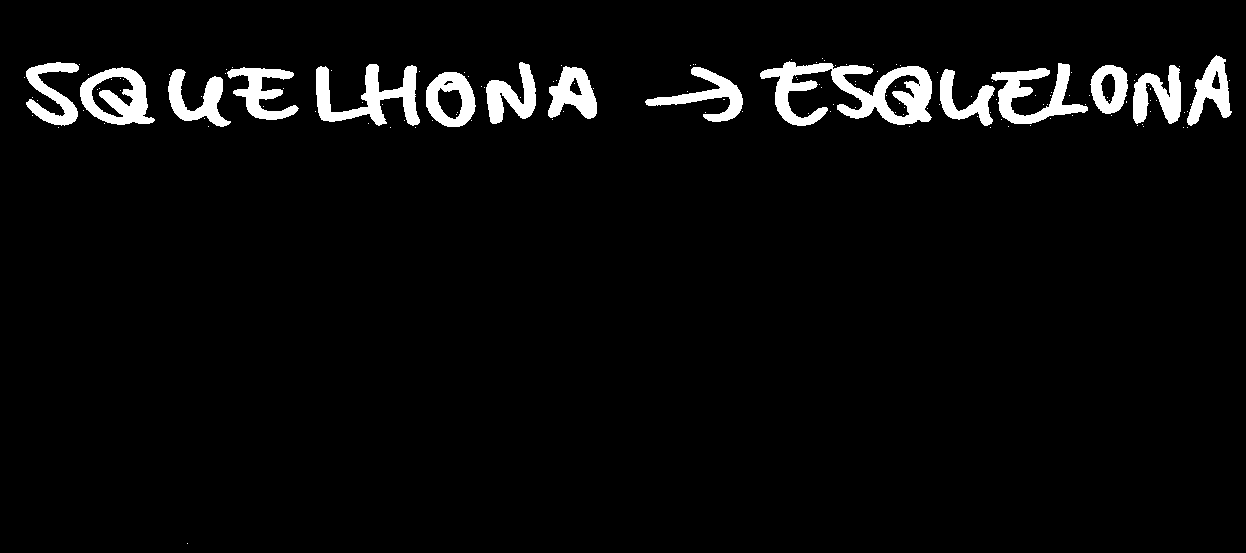 SQUELHONA → ESQUELONA